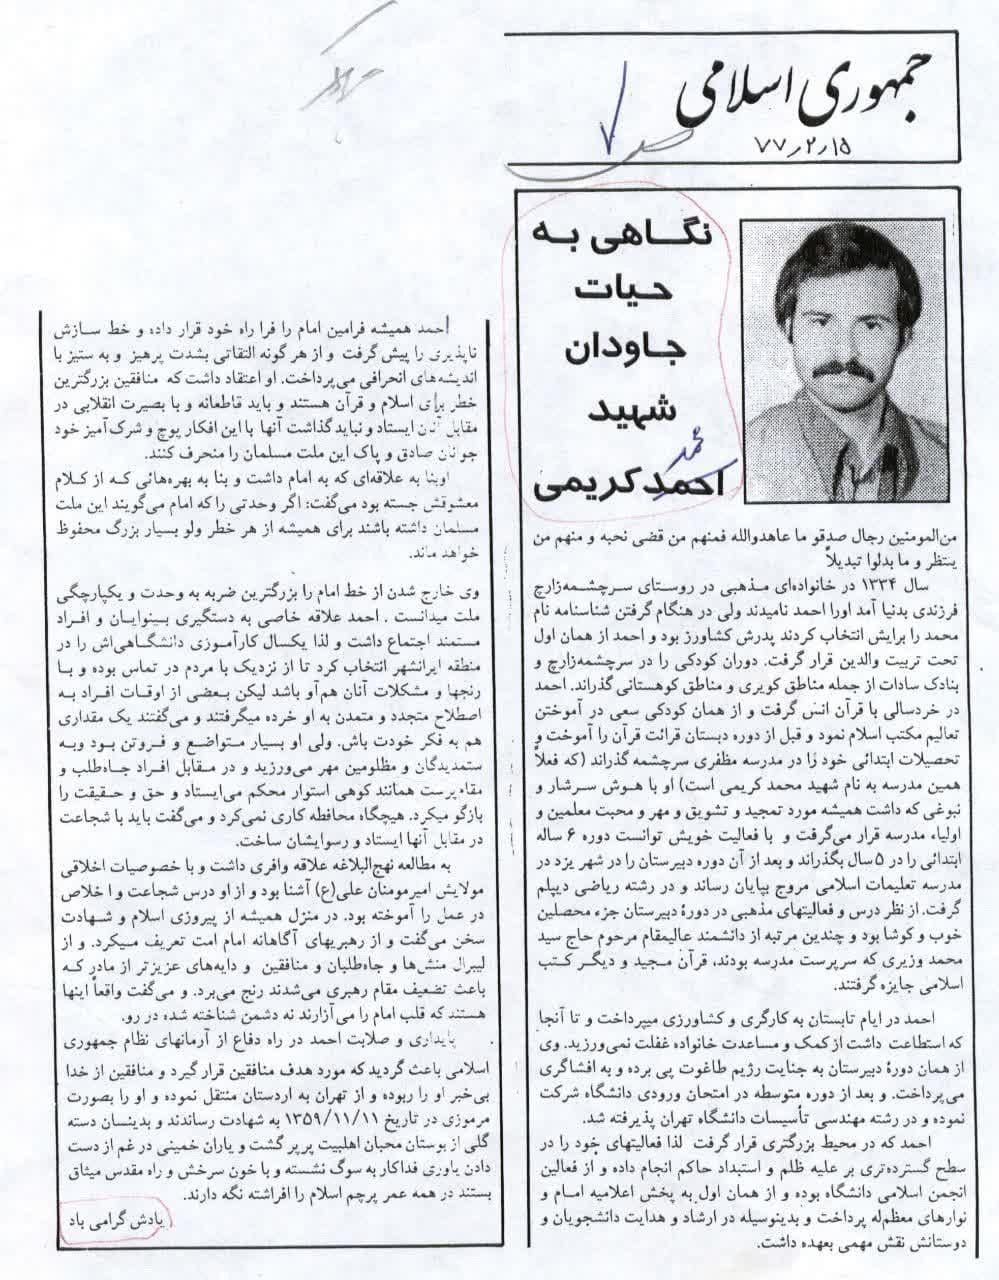 جمهوری اسلامی
۷۷٫۲٫۱۵
ص ۷
نگاهی به
حیات
جاودان
شهید
محمد
احمد کریمی
من‌المومنین رجال صدقو ما عاهدوالله فمنهم من قضی نحبه و منهم من
ینتظر و ما بدلوا تبدیلاً
سال ۱۳۳۴ در خانواده‌ای مذهبی در روستای سرچشمه‌زارچ
فرزندی بدنیا آمد اورا احمد نامیدند ولی در هنگام گرفتن شناسنامه نام
محمد را برایش انتخاب کردند پدرش کشاورز بود و احمد از همان اول
تحت تربیت والدین قرار گرفت. دوران کودکی را در سرچشمه‌زارچ و
بنادک سادات از جمله مناطق کویری و مناطق کوهستانی گذراند. احمد
در خردسالی با قرآن انس گرفت و از همان کودکی سعی در آموختن
تعالیم مکتب اسلام نمود و قبل از دوره دبستان قرائت قرآن را آموخت و
تحصیلات ابتدائی خود را در مدرسه مظفری سرچشمه گذراند (که فعلاً
همین مدرسه به نام شهید محمد کریمی است) او با هوش سرشار و
نبوغی که داشت همیشه مورد تمجید و تشویق و مهر و محبت معلمین و
اولیاء مدرسه قرار می‌گرفت و با فعالیت خویش توانست دوره ۶ ساله
ابتدائی را در ۵ سال بگذراند و بعد از آن دوره دبیرستان را در شهر یزد در
مدرسه تعلیمات اسلامی مروج بپایان رساند و در رشته ریاضی دیپلم
گرفت. از نظر درس و فعالیتهای مذهبی در دورهٔ دبیرستان جزء محصلین
خوب و کوشا بود و چندین مرتبه از دانشمند عالیمقام مرحوم حاج سید
محمد وزیری که سرپرست مدرسه بودند، قرآن مجید و دیگر کتب
اسلامی جایزه گرفتند.
احمد در ایام تابستان به کارگری و کشاورزی میپرداخت و تا آنجا
که استطاعت داشت از کمک و مساعدت خانواده غفلت نمی‌ورزید. وی
از همان دورهٔ دبیرستان به جنایت رژیم طاغوت پی برده و به افشاگری
می‌پرداخت. و بعد از دوره متوسطه در امتحان ورودی دانشگاه شرکت
نموده و در رشته مهندسی تأسیسات دانشگاه تهران پذیرفته شد.
احمد که در محیط بزرگتری قرار گرفت لذا فعالیتهای خود را در
سطح گسترده‌تری بر علیه ظلم و استبداد حاکم انجام داده و از فعالین
انجمن اسلامی دانشگاه بوده و از همان اول به پخش اعلامیه امام و
نوارهای معظم‌له پرداخت و بدینوسیله در ارشاد و هدایت دانشجویان و
دوستانش نقش مهمی بعهده داشت.
احمد همیشه فرامین امام را فرا راه خود قرار داده و خط سازش
ناپذیری را پیش‌گرفت و از هر گونه التقاتی بشدت پرهیز و به ستیز با
اندیشه‌های انحرافی می‌پرداخت. او اعتقاد داشت که منافقین بزرگترین
خطر برای اسلام و قرآن هستند و باید قاطعانه و با بصیرت انقلابی در
مقابل آنان ایستاد و نباید گذاشت آنها با این افکار پوچ و شرک‌آمیز خود
جوانان صادق و پاک این ملت مسلمان را منحرف کنند.
اوبنا به علاقه‌ای که به امام داشت و بنا به بهره‌هائی که از کلام
معشوقش جسته بود می‌گفت: اگر وحدتی را که امام می‌گویند این ملت
مسلمان داشته باشند برای همیشه از هر خطر ولو بسیار بزرگ محفوظ
خواهد ماند.
وی خارج شدن از خط امام را بزرگترین ضربه به وحدت و یکپارچگی
ملت میدانست . احمد علاقه خاصی به دستگیری بینوایان و افراد
مستمند اجتماع داشت و لذا یکسال کارآموزی دانشگاهی‌اش را در
منطقه ایرانشهر انتخاب کرد تا از نزدیک با مردم در تماس بوده و با
رنجها و مشکلات آنان هم‌آو باشد لیکن بعضی از اوقات افراد به
اصطلاح متجدد و متمدن به او خرده میگرفتند و می‌گفتند یک مقداری
هم به فکر خودت باش. ولی او بسیار متواضع و فروتن بود وبه
ستمدیدگان و مظلومین مهر می‌ورزید و در مقابل افراد جاه‌طلب و
مقام‌پرست همانند کوهی استوار محکم می‌ایستاد و حق و حقیقت را
بازگو میکرد. هیچگاه محافظه کاری نمی‌کرد و می‌گفت باید با شجاعت
در مقابل آنها ایستاد و رسوایشان ساخت.
به مطالعه نهج‌البلاغه علاقه وافری داشت و با خصوصیات اخلاقی
مولایش امیرمومنان علی(ع) آشنا بود و از او درس شجاعت و اخلاص
در عمل را آموخته بود. در منزل همیشه از پیروزی اسلام و شهادت
سخن می‌گفت و از رهبریهای آگاهانه امام امت تعریف میکرد. و از
لیبرال منش‌ها و جاه‌طلبان و منافقین و دایه‌های عزیزتر از مادر که
باعث تضعیف مقام رهبری می‌شدند رنج می‌برد. و می‌گفت واقعاً اینها
هستند که قلب امام را می‌آزارند نه دشمن شناخته شده در رو.
پایداری و صلابت احمد در راه دفاع از آرمانهای نظام جمهوری
اسلامی باعث گردید که مورد هدف منافقین قرار گیرد و منافقین از خدا
بی‌خبر او را ربوده و از تهران به اردستان منتقل نموده و او را بصورت
مرموزی در تاریخ ۱۳۵۹/۱۱/۱۱ به شهادت رساندند و بدینسان دسته
گلی از بوستان محبان اهلبیت پرپر گشت و یاران خمینی در غم از دست
دادن یاوری فداکار به سوگ نشسته و با خون سرخش و راه مقدس میثاق
بستند در همه عمر پرچم اسلام را افراشته نگه دارند.
یادش گرامی باد